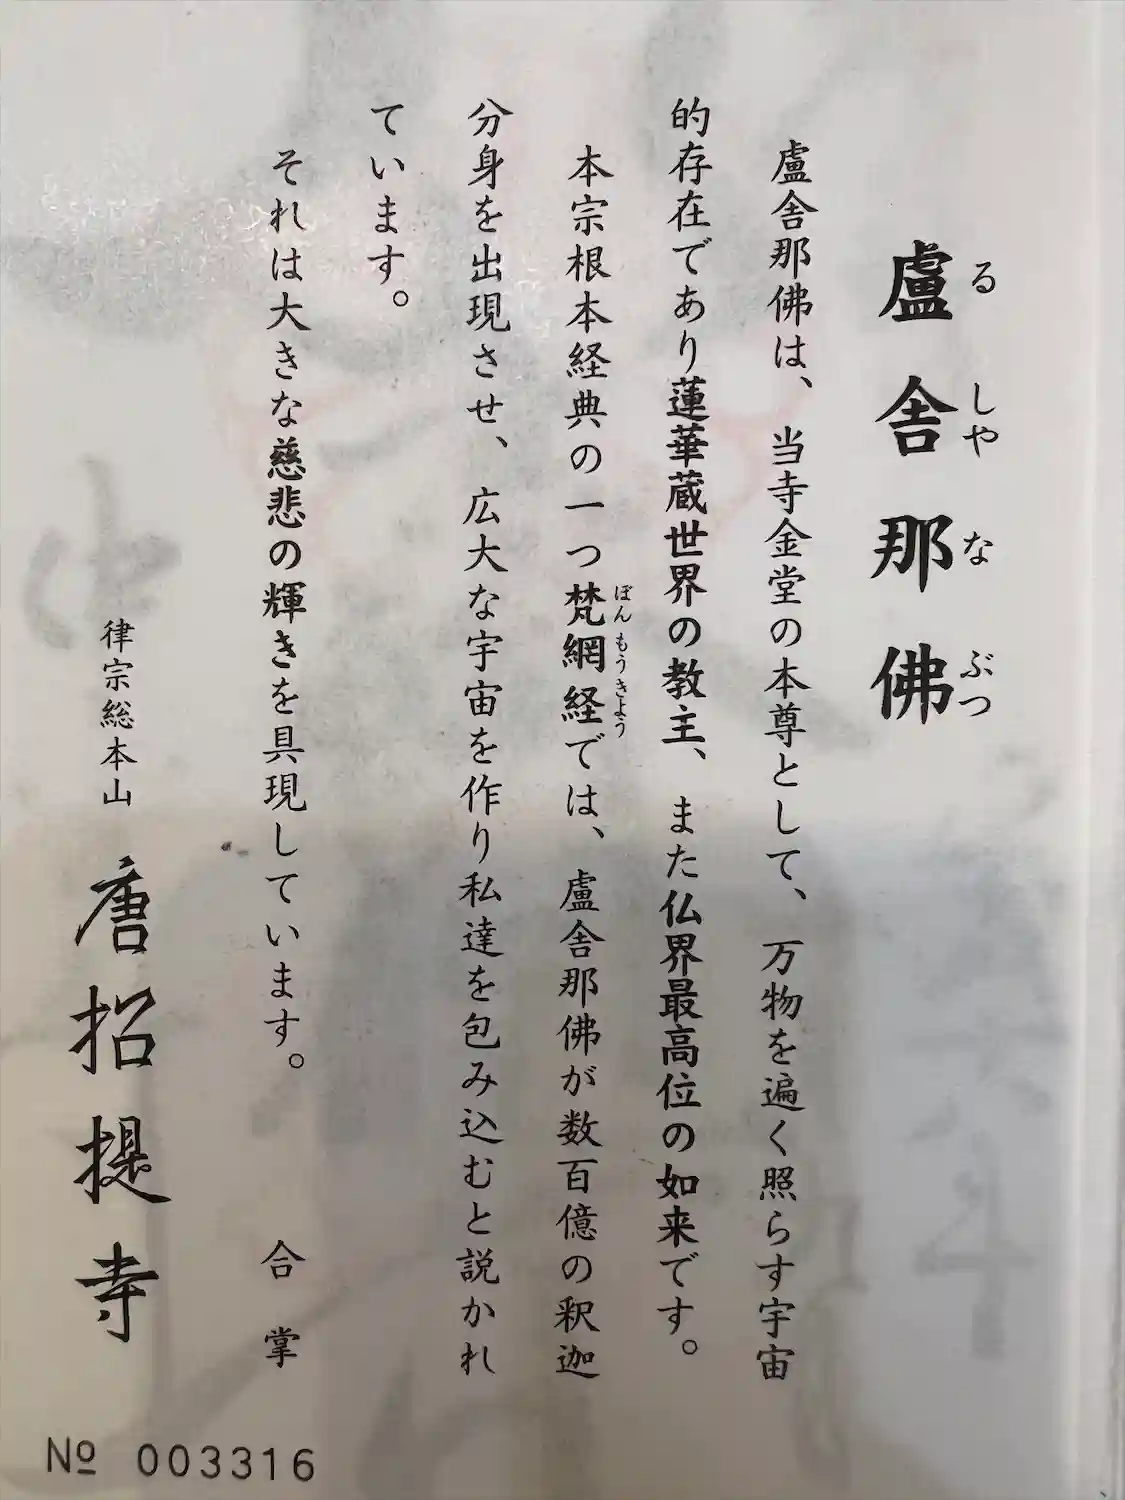 盧舎那佛
るしやなぶつ
盧舎那佛は、当寺金堂の本尊として、万物を遍く照らす宇宙
的存在であり蓮華蔵世界の教主、また仏界最高位の如来です。
本宗根本経典の一つ梵網経では、盧舎那佛が数百億の釈迦
ぼんもうきよう
分身を出現させ、広大な宇宙を作り私達を包み込むと説かれ
ています。
それは大きな慈悲の輝きを具現しています。
合掌
律宗総本山 唐招提寺
№ 003316